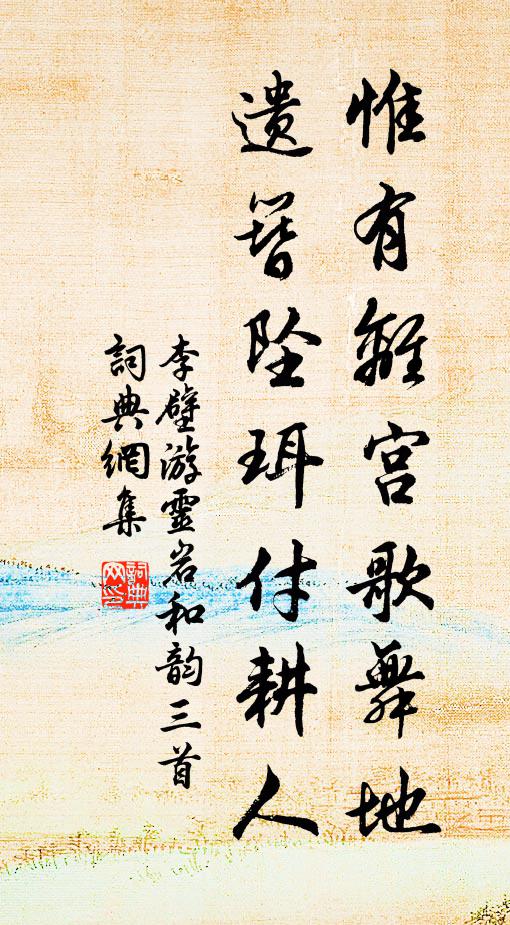 惟有離宮歌舞地
遺簪墜珥付耕人
李壁游靈岩和韵三首
詞典網集